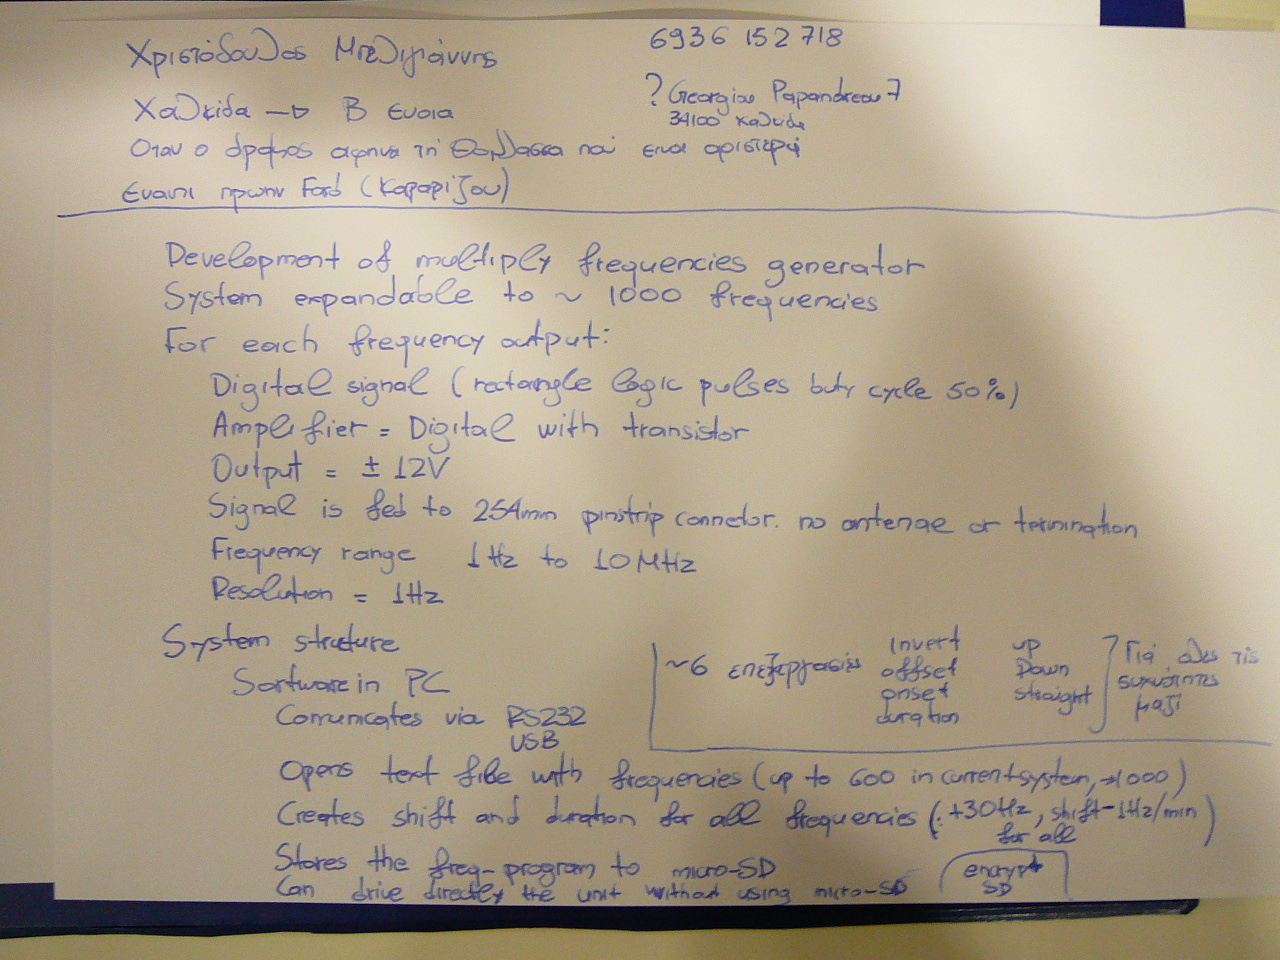 Χριστόδουλος Μπελιγιάννης
6936 152 718
? Georgiou Papandreou 7
34100 Χαλκίδα
Χαλκίδα → Β Ευοια
Οταν ο δρομος αφηνει τη θαλλασσα που ειναι αριστερά
Εναντι πρωην Ford (Καραριζου)
Development of multiply frequencies generator
System expandable to ~ 1000 frequencies
For each frequency output:
Digital signal (rectangle logic pulses buty cycle 50%)
Amplifier = Digital with transistor
Output = ± 12V
Signal is fed to 254mm pinstrip connector. no antenae or termination
Frequency range 1Hz to 10MHz
Resolution = 1Hz
System structure
Sortware in PC
Comunicates via RS232
USB
~6 επεξεργασίες
Invert
offset
onset
duration
up
Down
straight
Γιά όλες τίς
συχνότητες
μαζί
Opens text file with frequencies (up to 600 in current system, →1000)
Creates shift and duration for all frequencies (: +30Hz, shift-1Hz/min)
for all
Stores the freq-program to micro-SD
Can drive directly the unit without using micro-SD
encrypt
SD